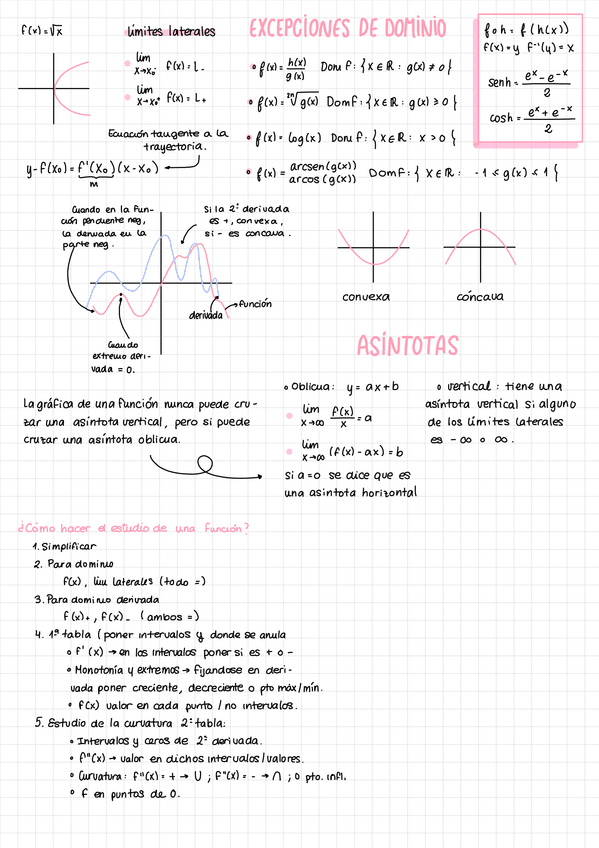 f(x) = √x
límites laterales
lim x→x₀⁻ f(x) = L₋
lim x→x₀⁺ f(x) = L₊
Ecuación tangente a la
trayectoria.
y - f(x₀) = f'(x₀)(x - x₀)
m
EXCEPCIONES DE DOMINIO
f(x) = h(x)/g(x) Dom f: {x ∈ ℝ: g(x) ≠ 0}
f(x) = ²ⁿ√g(x) Dom f: {x ∈ ℝ: g(x) ≥ 0}
f(x) = log(x) Dom f: {x ∈ ℝ: x > 0}
f(x) = arcsen(g(x)) arcos(g(x)) Dom f: {x ∈ ℝ: -1 ≤ g(x) ≤ 1}
f∘h = f(h(x))
f(x) = y f⁻¹(y) = x
senh = (eˣ - e⁻ˣ)/2
cosh = (eˣ + e⁻ˣ)/2
Cuando en la fun-
ción pendiente neg,
la derivada en la
parte neg.
Si la 2ª derivada
es +, convexa,
si - es concava.
función
derivada
Cuando
extremo deri-
vada = 0.
convexa
cóncava
ASÍNTOTAS
La gráfica de una función nunca puede cru-
zar una asíntota vertical, pero si puede
cruzar una asíntota oblicua.
Oblicua: y = ax + b
lim x→∞ f(x)/x = a
lim x→∞ (f(x) - ax) = b
si a = 0 se dice que es
una asíntota horizontal
vertical: tiene una
asíntota vertical si alguno
de los límites laterales
es -∞ o ∞.
¿Cómo hacer el estudio de una función?
1. Simplificar
2. Para dominio
f(x), lim laterales (todo =)
3. Para dominio derivada
f(x)₊, f(x)₋ (ambos =)
4. 1ª tabla (poner intervalos y donde se anula
f'(x) → en los intervalos poner si es + o -
Monotonía y extremos → fijandose en deri-
vada poner creciente, decreciente o pto máx/mín.
f(x) valor en cada punto / no intervalos.
5. Estudio de la curvatura 2ª tabla:
Intervalos y ceros de 2ª derivada.
f''(x) → valor en dichos intervalos/valores.
Curvatura: f''(x) = + → ∪ ; f''(x) = - → ∩ ; 0 pto. infl.
f en puntos de 0.